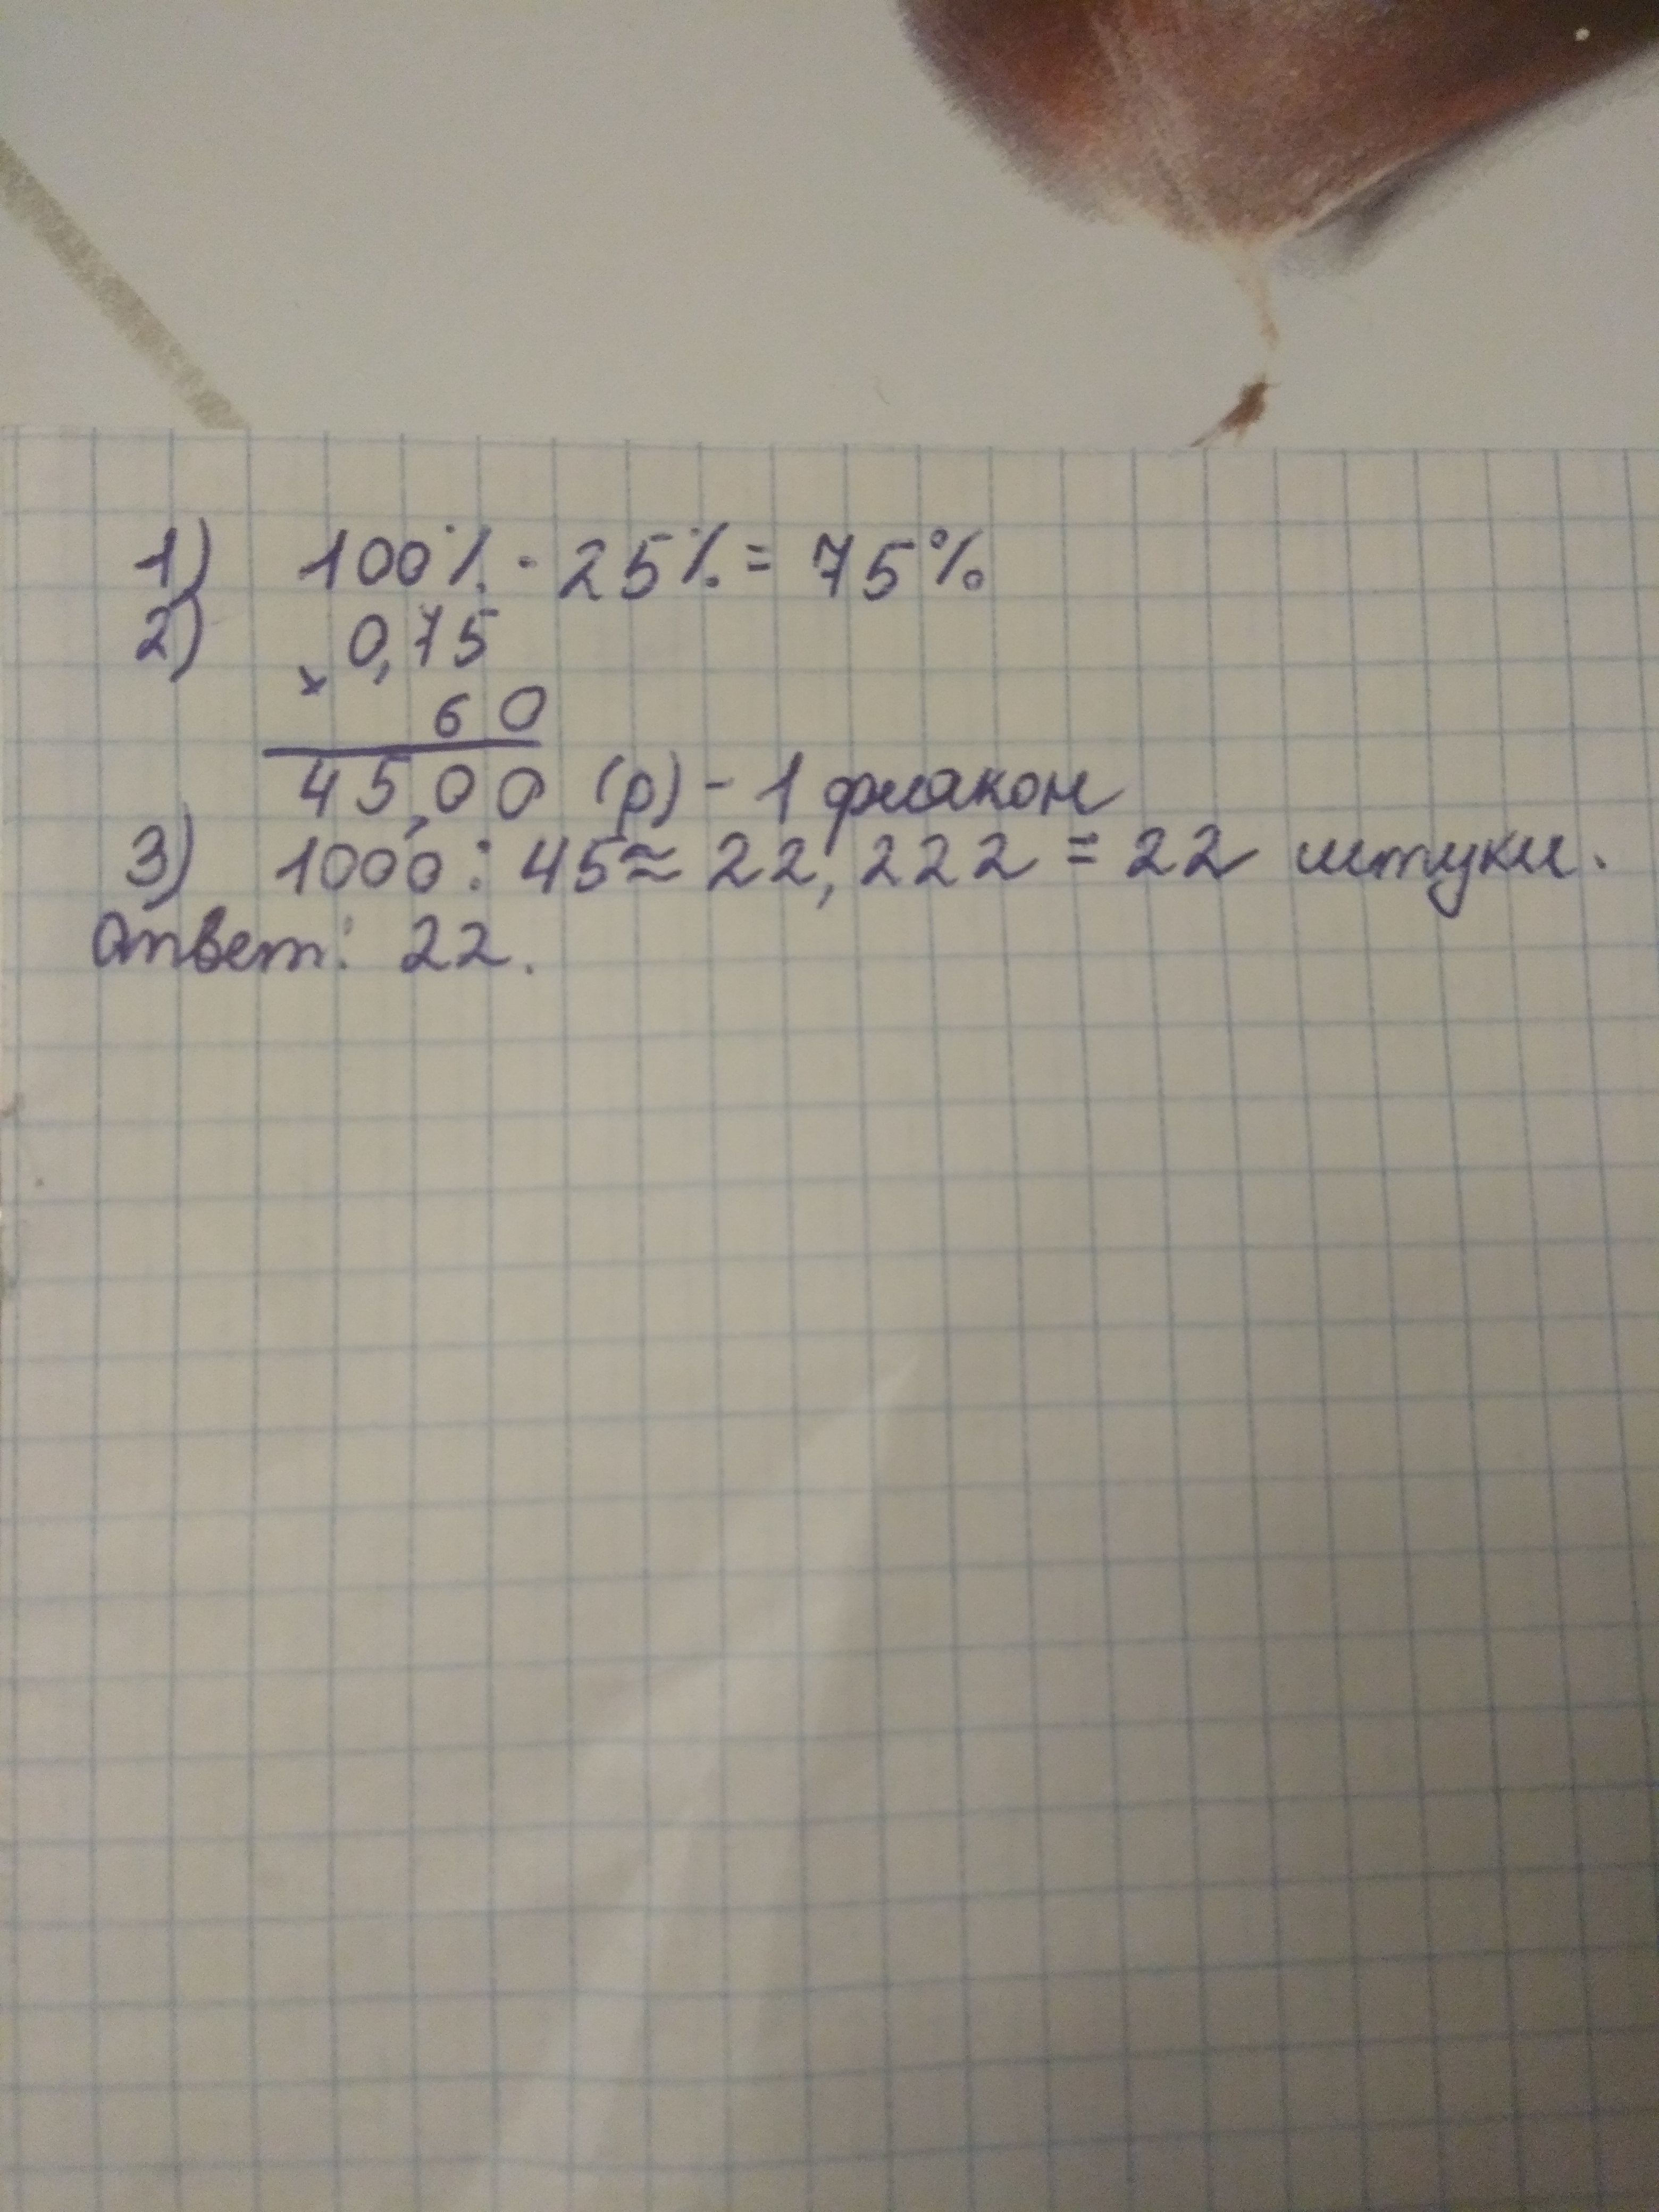 1) 100% - 25% = 75%
2) 0,75
× 60
45,00 (р) - 1 флакон
3) 1000 : 45 ≈ 22,222 = 22 штуки.
Ответ: 22.